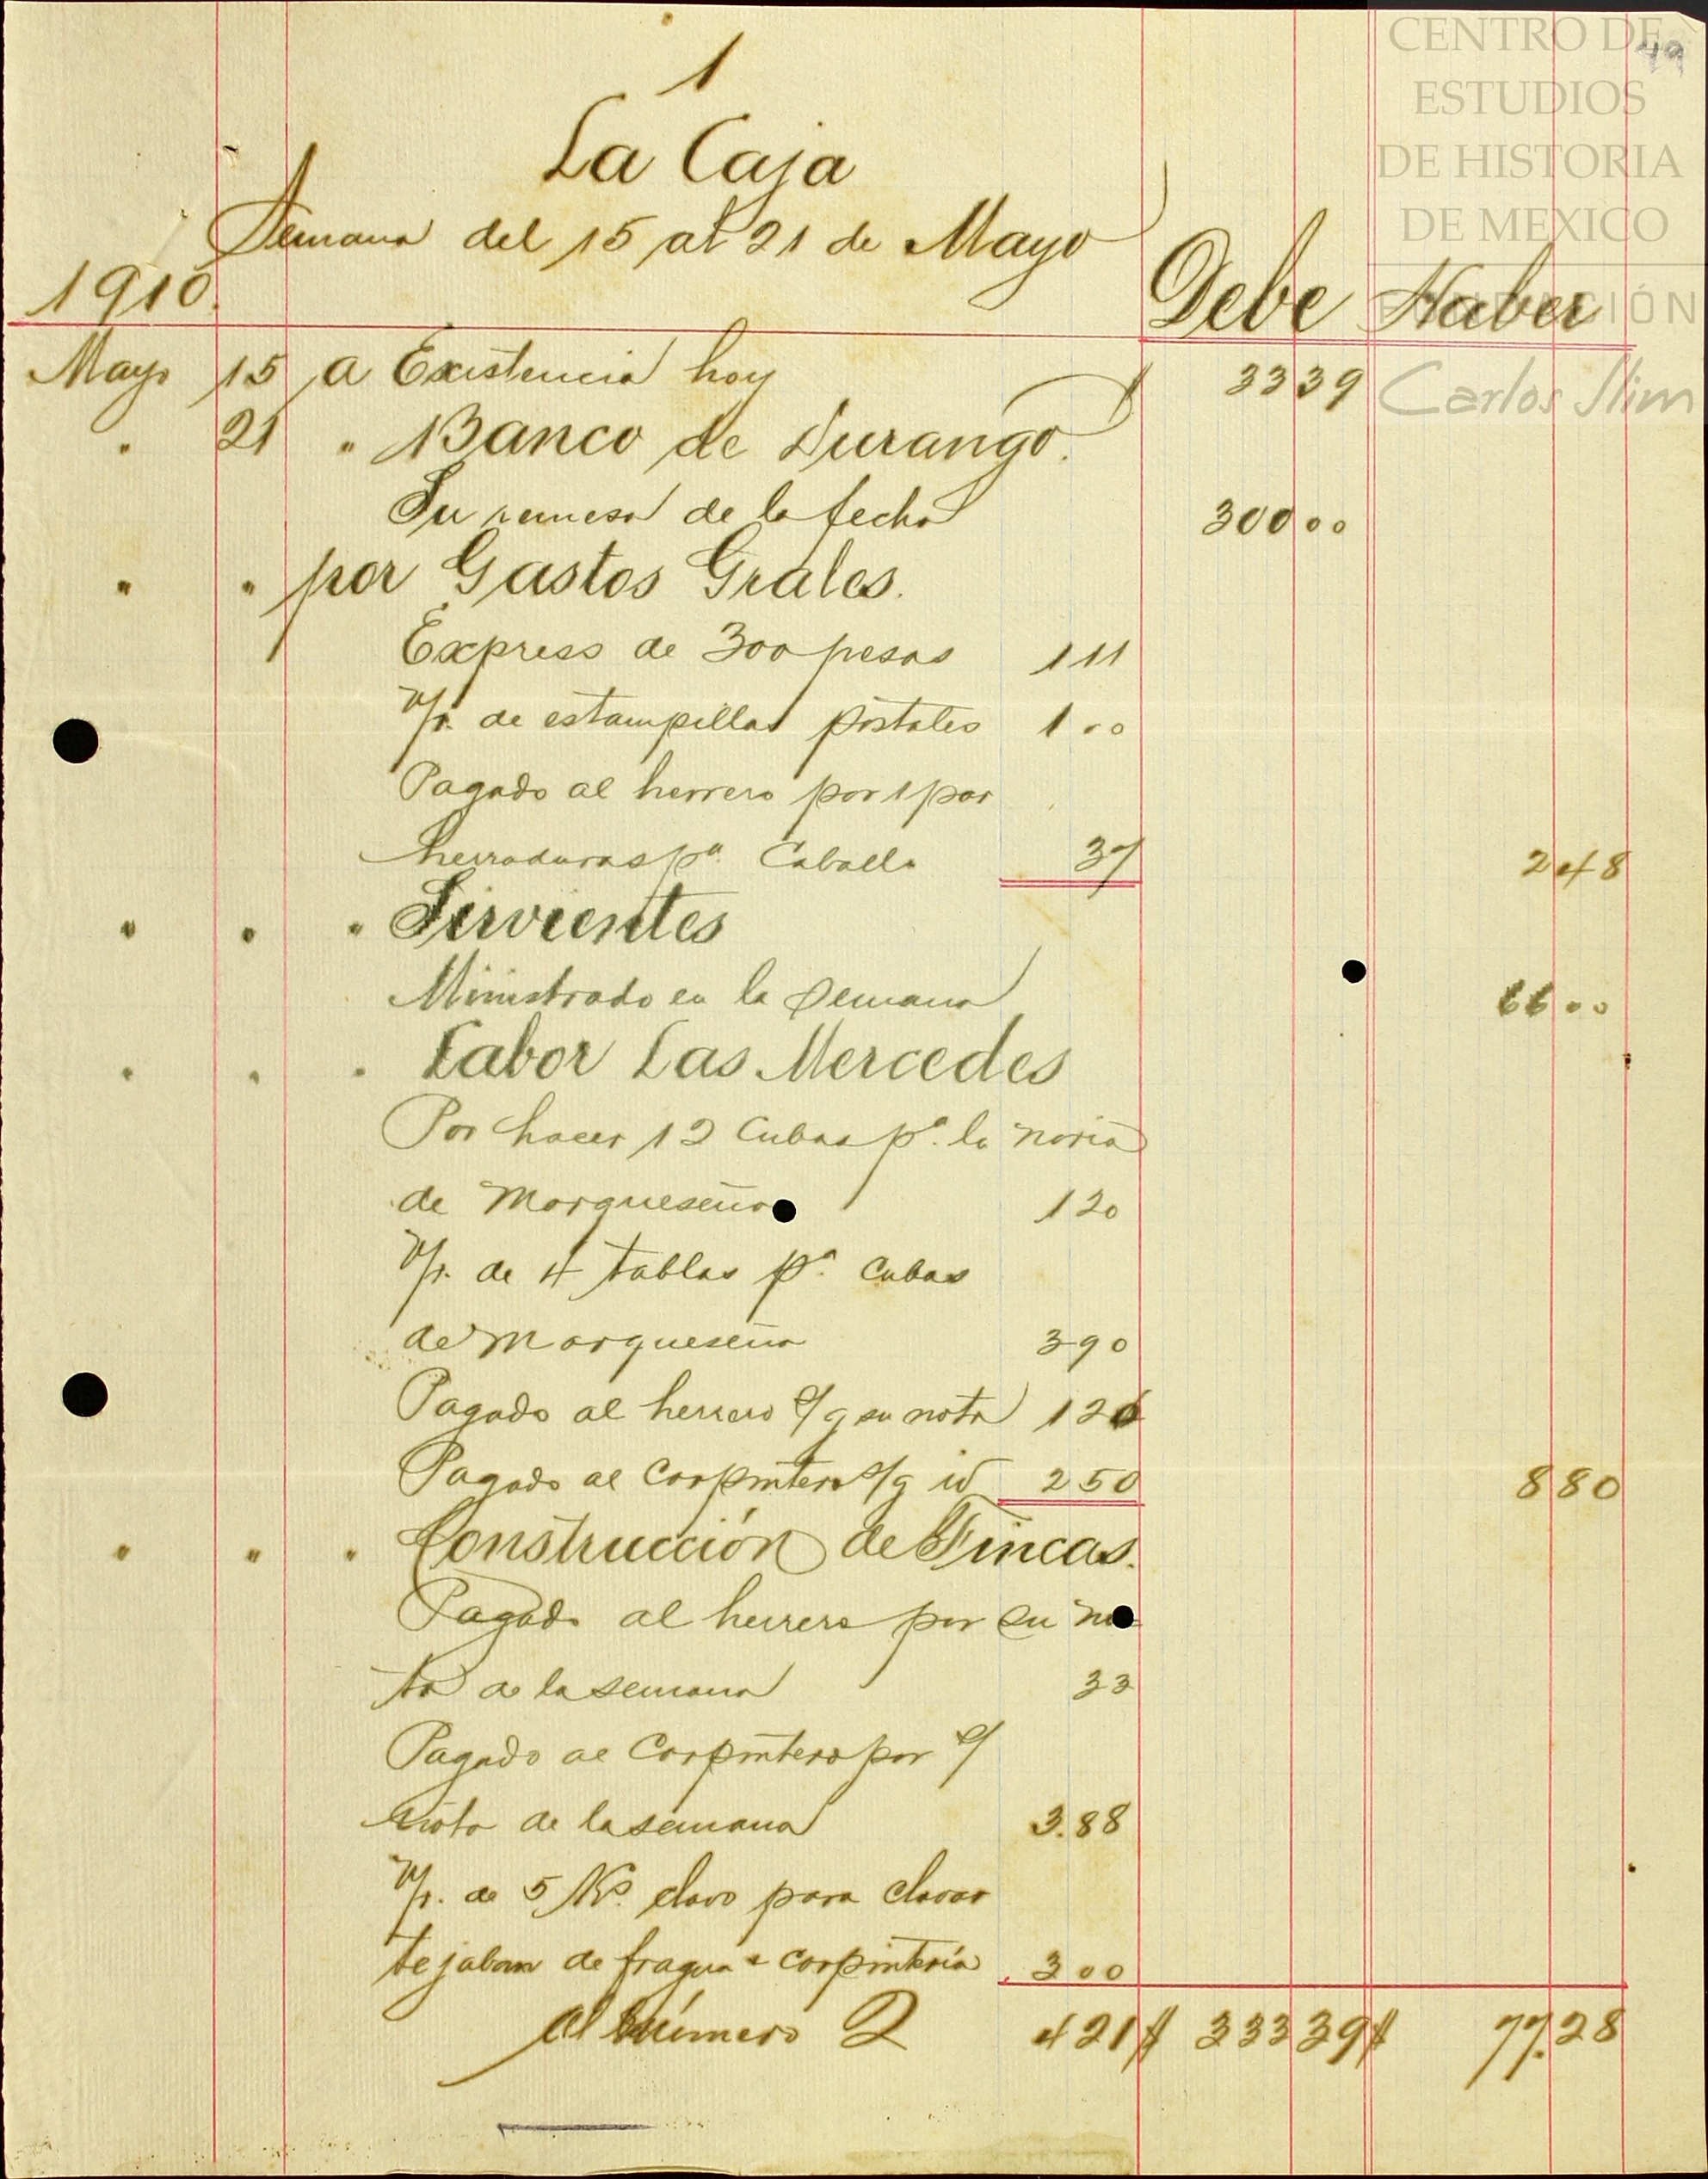 49
CENTRO DE
ESTUDIOS
DE HISTORIA
DE MEXICO
Carlos Slim
1
La Caja
Semana del 15 al 21 de Mayo
1910. Debe Haber
Mayo 15 a Existencia hoy $ 33 39
" 21 " Banco de Durango.
Su remesa de la fecha 300 00
" " por Gastos Grales.
Express de 300 pesos 1 11
V/r. de estampillas postales 1 00
Pagado al herrero por 1 par
herraduras pa. Caballo 37 2 48
" " " Sirvientes
Ministrado en la Semana 66 00
" " " Labor Las Mercedes
Por hacer 12 Cubas pa. la noria
de Marqueseña 1 20
V/r. de 4 tablas pa. cubas
de Marqueseña 3 90
Pagado al herrero s/g su nota 1 20
Pagado al Carpintero s/g id 2 50 8 80
" " " Construcción de Fincas.
Pagado al herrero por su no-
ta de la semana 33
Pagado al Carpintero por s/
nota de la semana 3.88
V/r. de 5 Ks. clavo para clavar
tejaban de fragua & carpintería 3 00
Al número 2 4 21 $ 333 39 $ 77.28